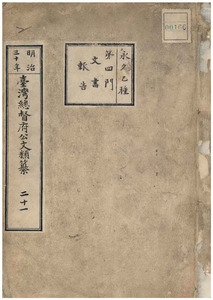 永久乙種
第四門
文書
報告
明治
三十年
臺灣總督府公文類纂
二十一